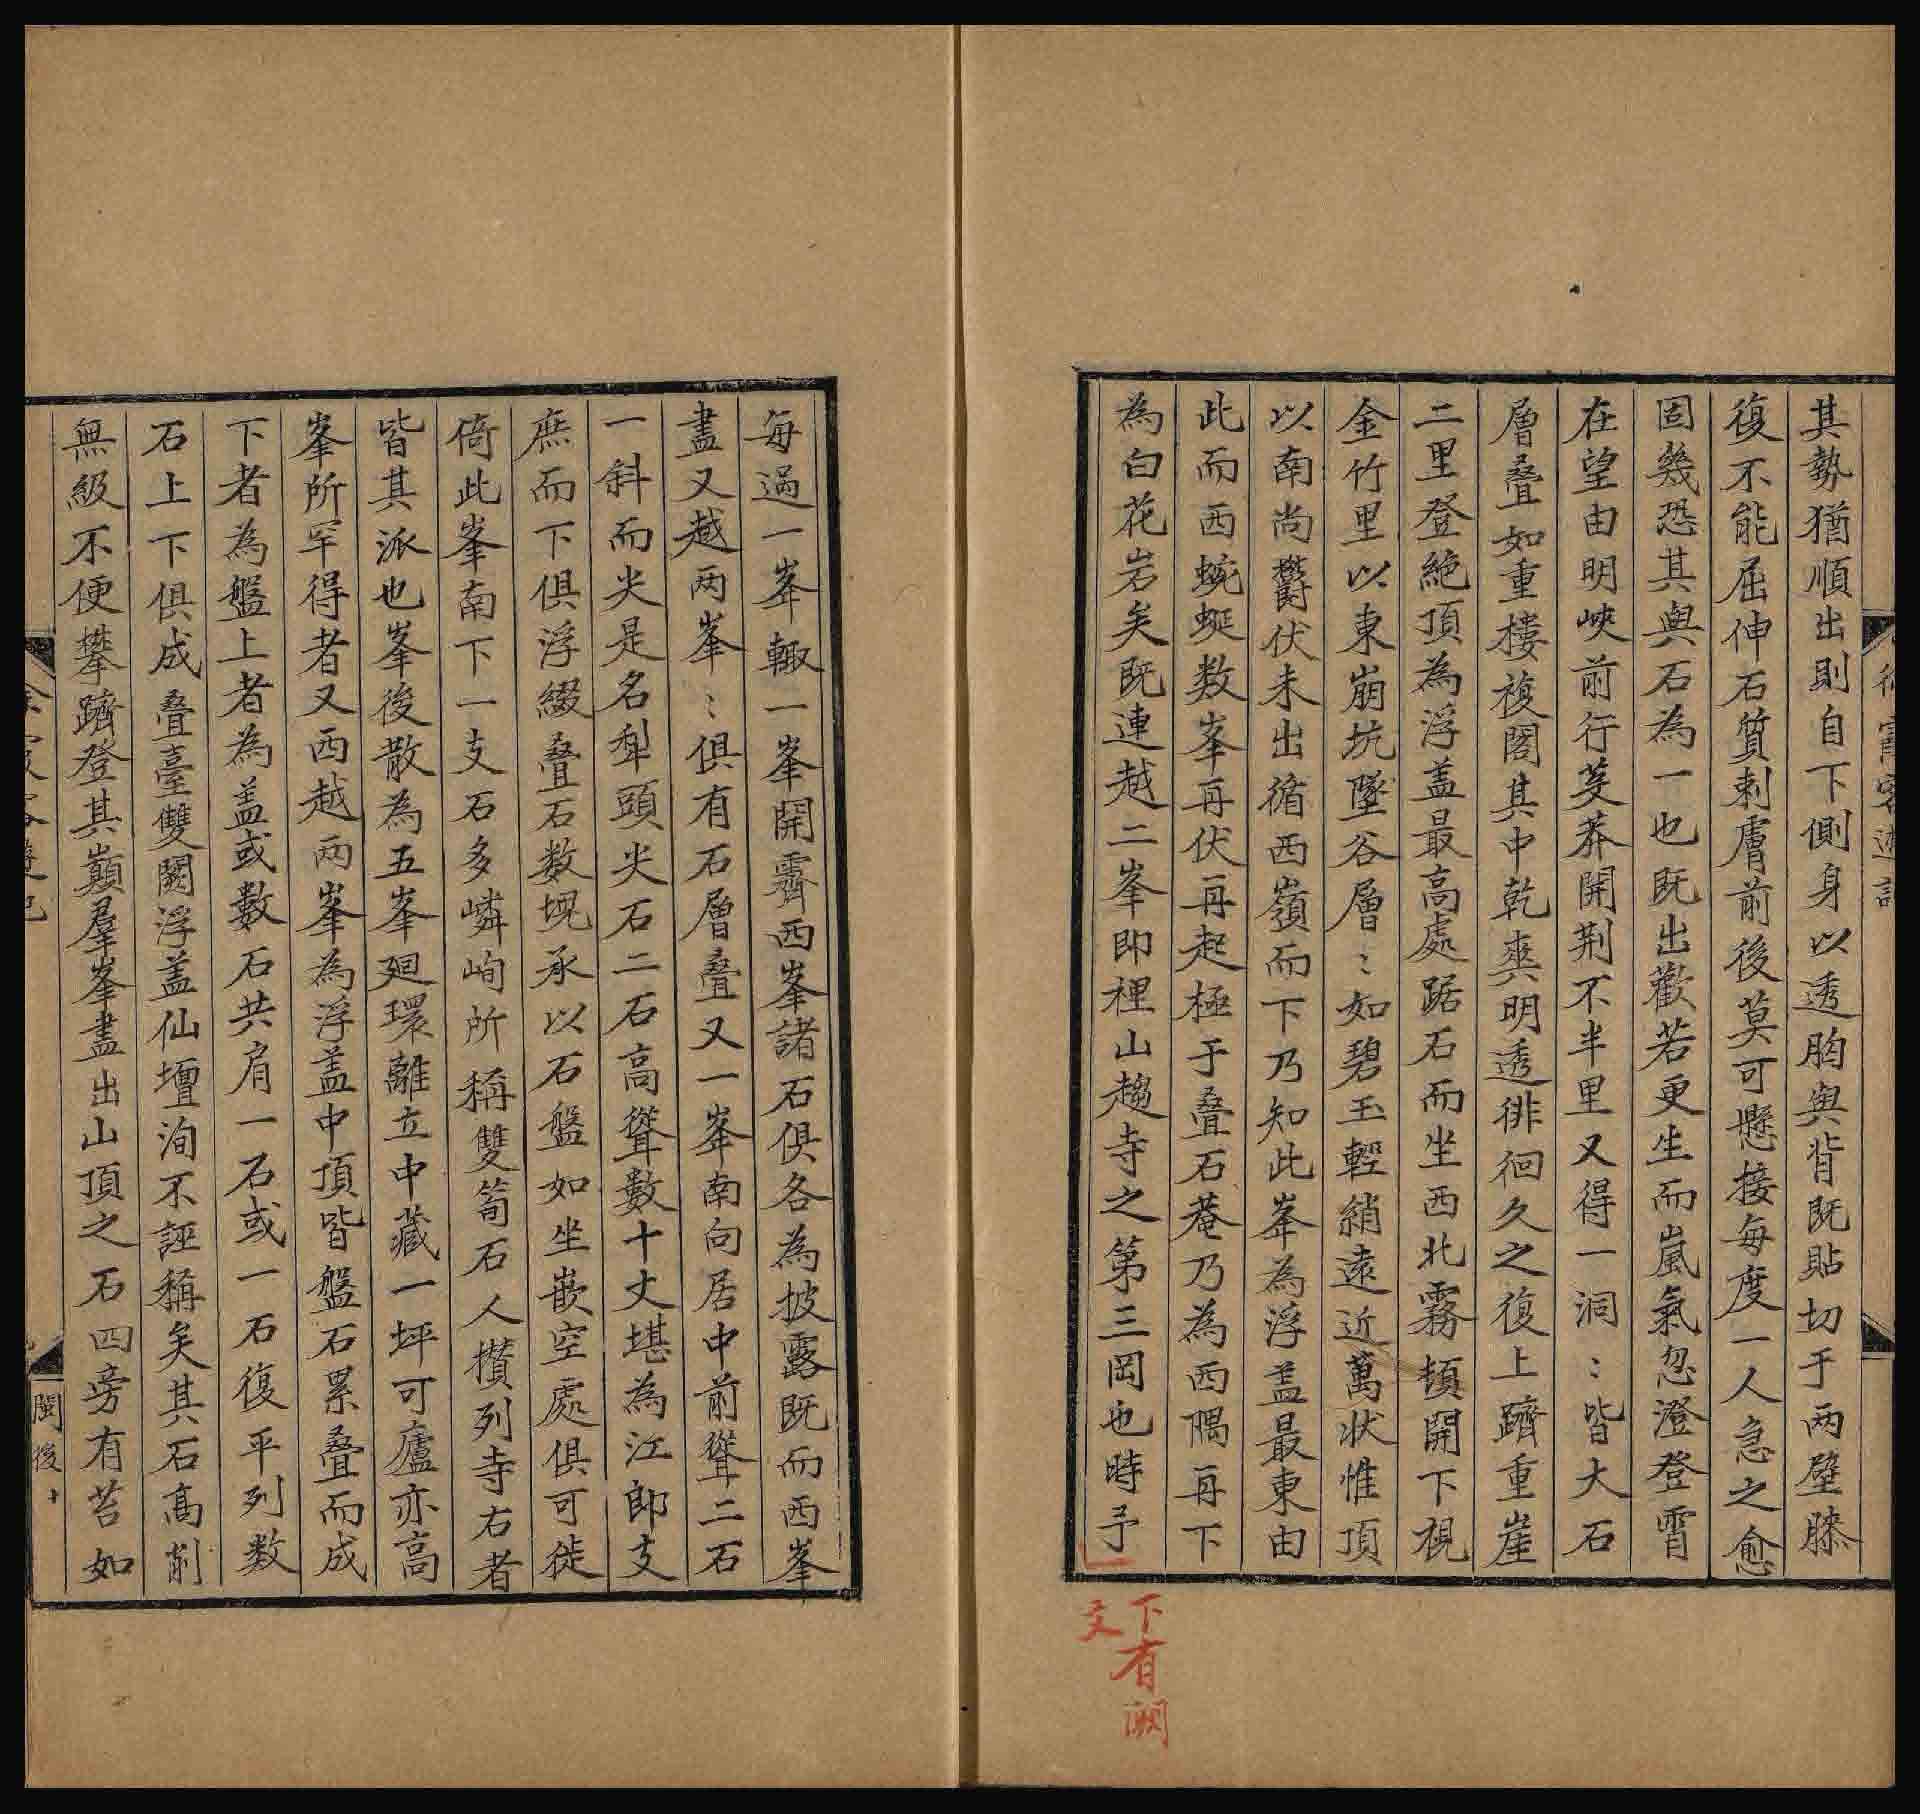 其勢猶順出則自下側身以透胸與背既貼切于两壁膝
復不能屈伸石質刺膚前後莫可懸接每度一人急之愈
固幾恐其與石為一也既出歡若更生而嵐氣忽澄登霄
在望由明峽前行芟莽開荆不半里又得一洞〻皆大石
層叠如重樓複閣其中乾爽明透徘徊久之復上躋重崖
二里登絶頂為浮盖最高處踞石而坐西北霧頓開下視
金竹里以東崩坑墜谷層〻如碧玉輕綃遠近萬状惟頂
以南尚鬱伏未出循西嶺而下乃知此峯為浮盖最東由
此而西蜿蜒数峯再伏再起極于叠石菴乃為西隅再下
為白花岩矣既連越二峯即裡山趨寺之第三岡也時予
下有闕
文
每過一峯輙一峯開霽西峯諸石俱各為披露既而西峯
盡又越两峯〻俱有石層叠又一峯南向居中前聳二石
一斜而尖是名犁頭尖石二石高聳數十丈堪為江郎支
庶而下俱浮綴叠石数塊承以石盤如坐嵌空處俱可徙
倚此峯南下一支石多嶙峋所稱雙笋石人攅列寺右者
皆其派也峯後散為五峯廻環離立中藏一坪可廬亦高
峯所罕得者又西越两峯為浮盖中頂皆盤石累叠而成
下者為盤上者為盖或數石共肩一石或一石復平列数
石上下俱成叠臺雙闕浮盖仙壇洵不誣稱矣其石高削
無級不便攀躋登其巔羣峯盡出山頂之石四旁有苔如
閩後十